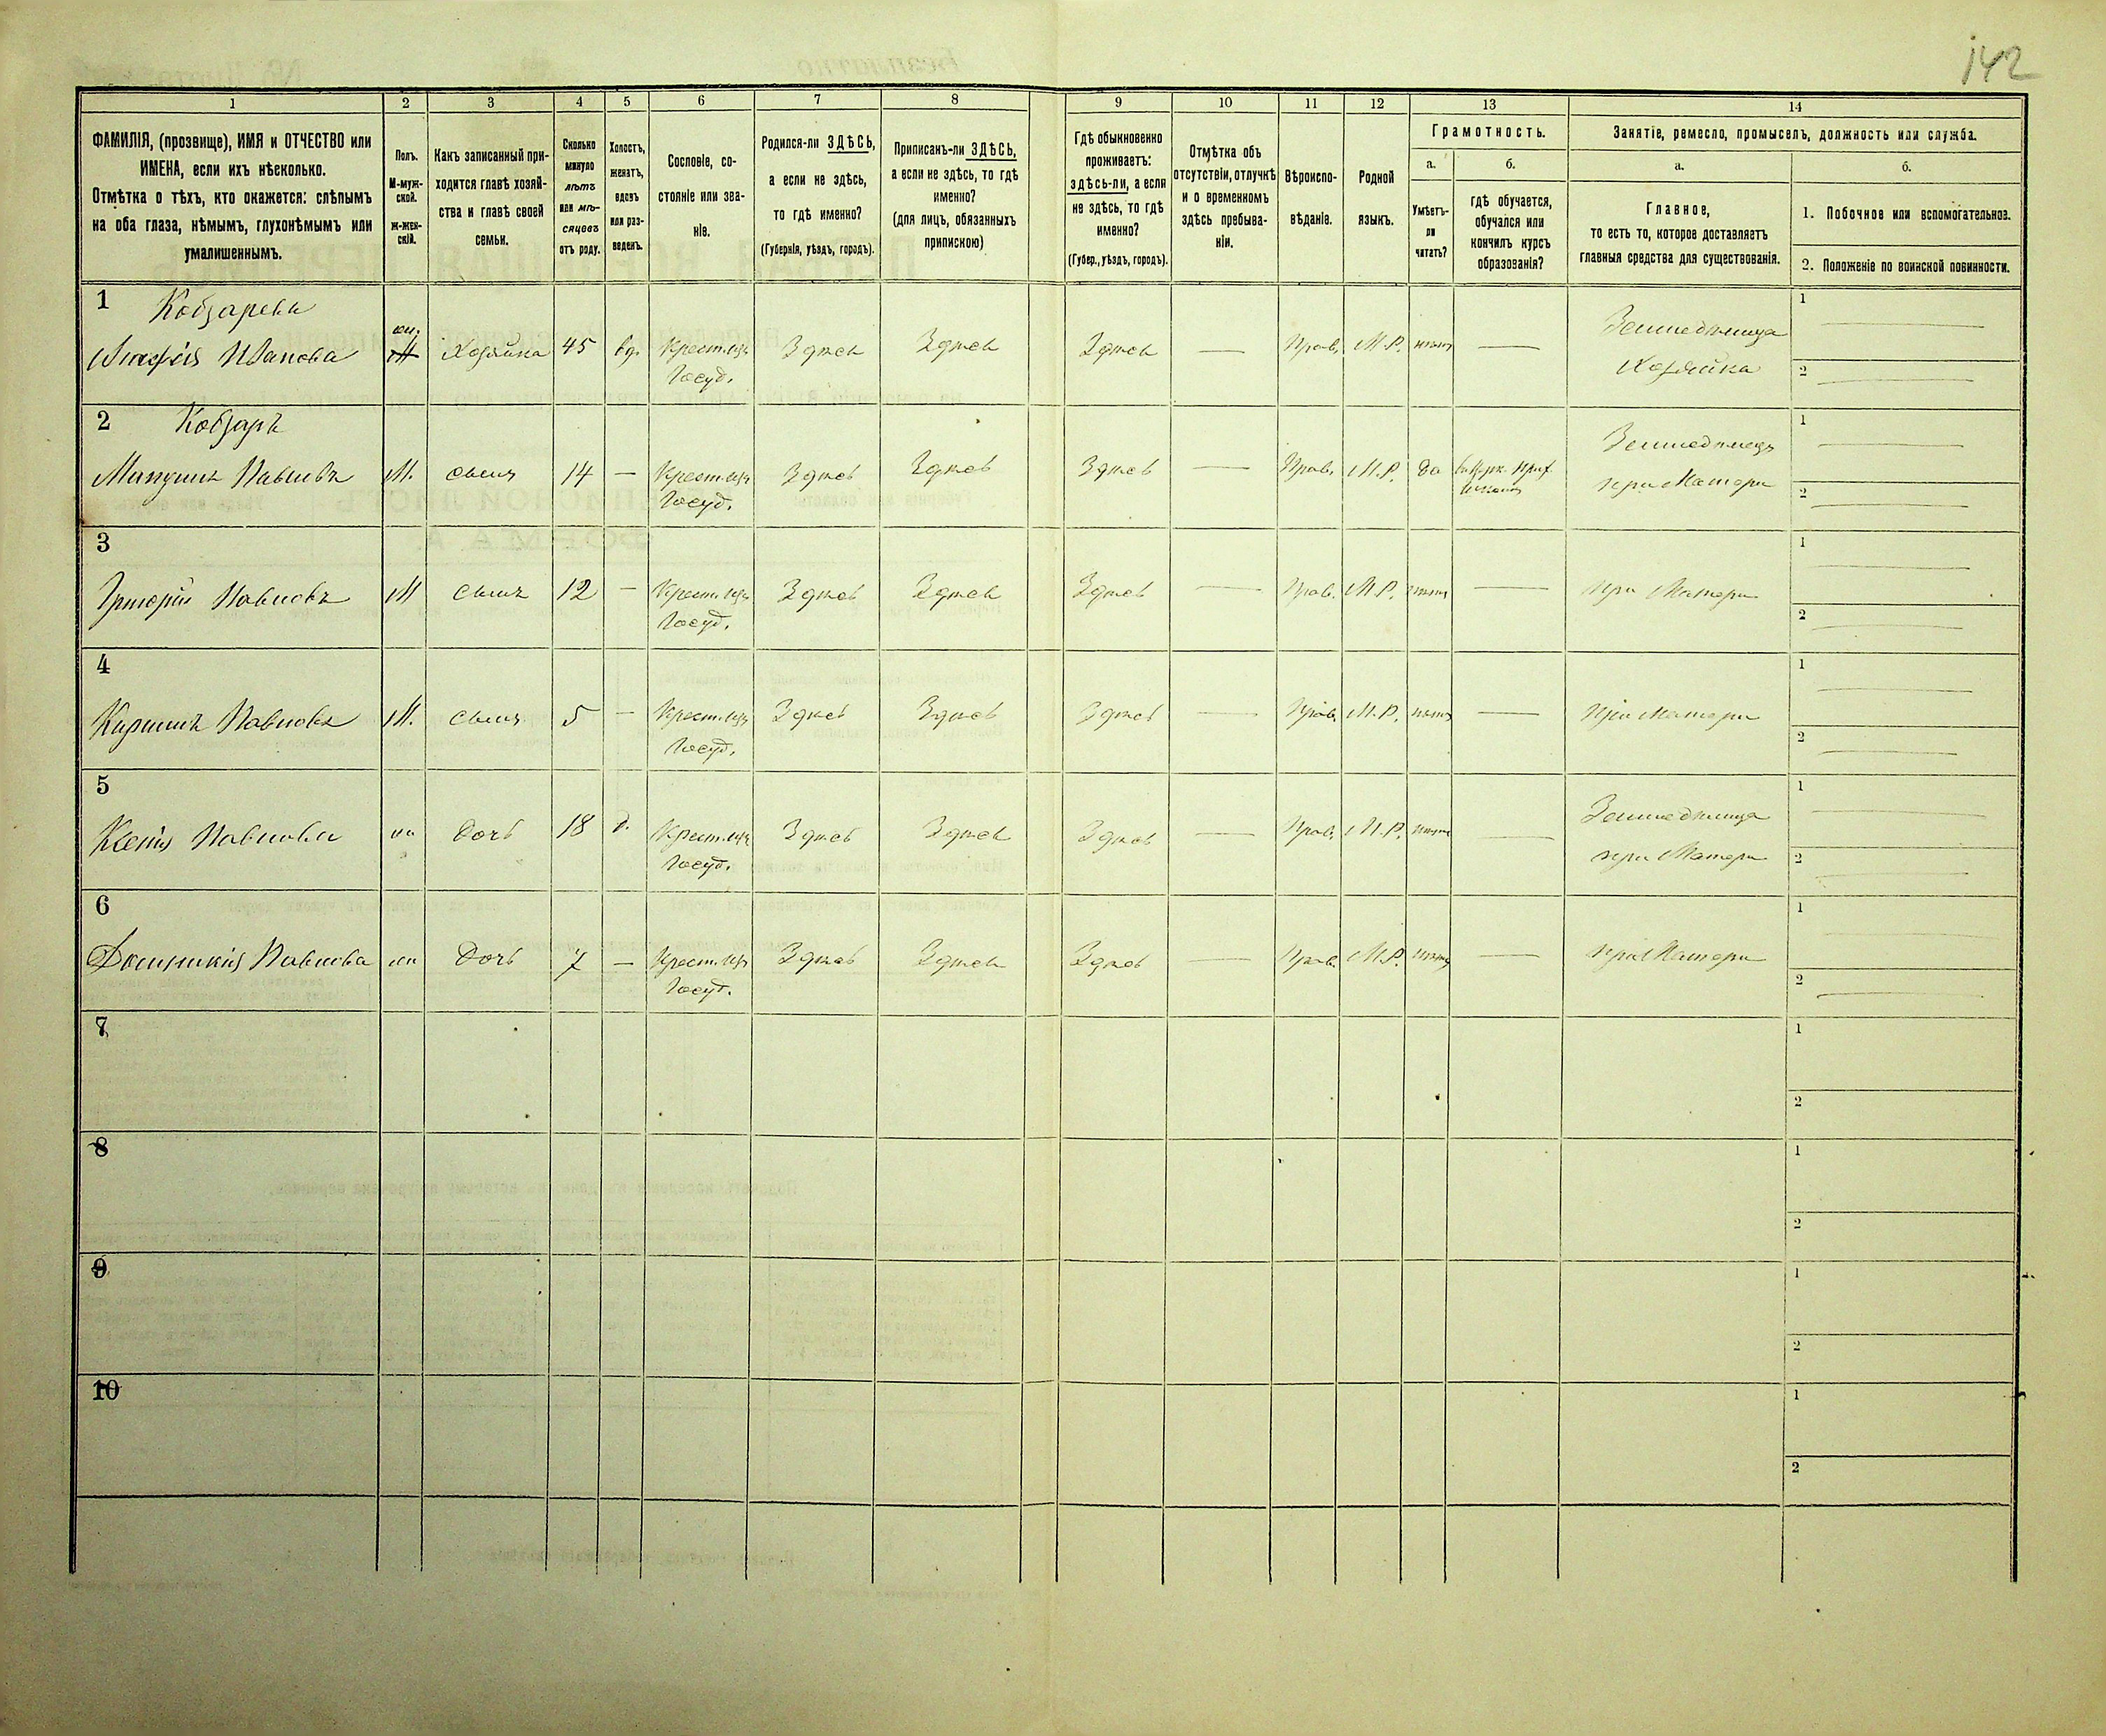 142
1
2
3
4
5
6
7
8
9
10
11
12
13
14
ФАМИЛІЯ, (прозвище), ИМЯ и ОТЧЕСТВО или
ИМЕНА, если ихъ нѣсколько.
Отмѣтка о тѣхъ, кто окажется: слѣпымъ
на оба глаза, нѣмымъ, глухонѣмымъ или
умалишеннымъ.
Полъ.
М-муж-
ской.
Ж-жен-
скій.
Какъ записанный при-
ходится главѣ хозяй-
ства и главѣ своей
семьи.
Сколько
минуло
лѣтъ
или мѣ-
сяцевъ
отъ роду.
Холостъ,
женатъ,
вдовъ
или раз-
веденъ.
Сословіе, со-
стояніе или зва-
ніе.
Родился-ли ЗДѢСЬ,
а если не здѣсь,
то гдѣ именно?
(Губернія, уѣздъ, городъ).
Приписанъ-ли ЗДѢСЬ,
а если не здѣсь, то гдѣ
именно?
(для лицъ, обязанныхъ
припискою)
Гдѣ обыкновенно
проживаетъ:
здѣсь-ли, а если
не здѣсь, то гдѣ
именно?
(Губер., уѣздъ, городъ).
Отмѣтка объ
отсутствіи, отлучкѣ
и о временномъ
здѣсь пребыва-
ніи.
Вѣроиспо-
вѣданіе.
Родной
языкъ.
Грамотность.
а.
Умѣетъ-
ли
читать?
б.
гдѣ обучается,
обучался или
кончилъ курсъ
образованія?
Занятіе, ремесло, промыселъ, должность или служба.
а.
Главное,
то есть то, которое доставляетъ
главныя средства для существованія.
б.
1. Побочное или вспомогательное.
2. Положеніе по воинской повинности.
1 Кобзарева
Агафія Иванова ж. Хозяйка 45 вд. Крест. изъ Здѣсь Здѣсь Здѣсь — Прав. М.Р. нѣтъ — Земледѣлица 1
Госуд. Хозяйка 2
2 Кобзарь
Павловъ М. сынъ 14 — Крест. изъ Здѣсь Здѣсь Здѣсь — Прав. М.Р. да въ Церк. Прих. Земледѣлецъ 1
Госуд. школѣ при Матери 2
3
Григорій Павловъ М сынъ 12 — Крест. изъ Здѣсь Здѣсь Здѣсь — Прав. М.Р. нѣтъ — при Матери 1
Госуд. 2
4
Кирилъ Павловъ М. сынъ 5 — Крест. изъ Здѣсь Здѣсь Здѣсь — Прав. М.Р. нѣтъ — при Матери 1
Госуд. 2
5
Ксенія Павлова ж дочь 18 д. Крест. изъ Здѣсь Здѣсь Здѣсь — Прав. М.Р. нѣтъ — Земледѣлица 1
Госуд. при Матери 2
6
Павлова ж дочь 7 — Крест. изъ Здѣсь Здѣсь Здѣсь — Прав. М.Р. нѣтъ — при Матери 1
Госуд. 2
7 1
2
8 1
2
9 1
2
10 1
2